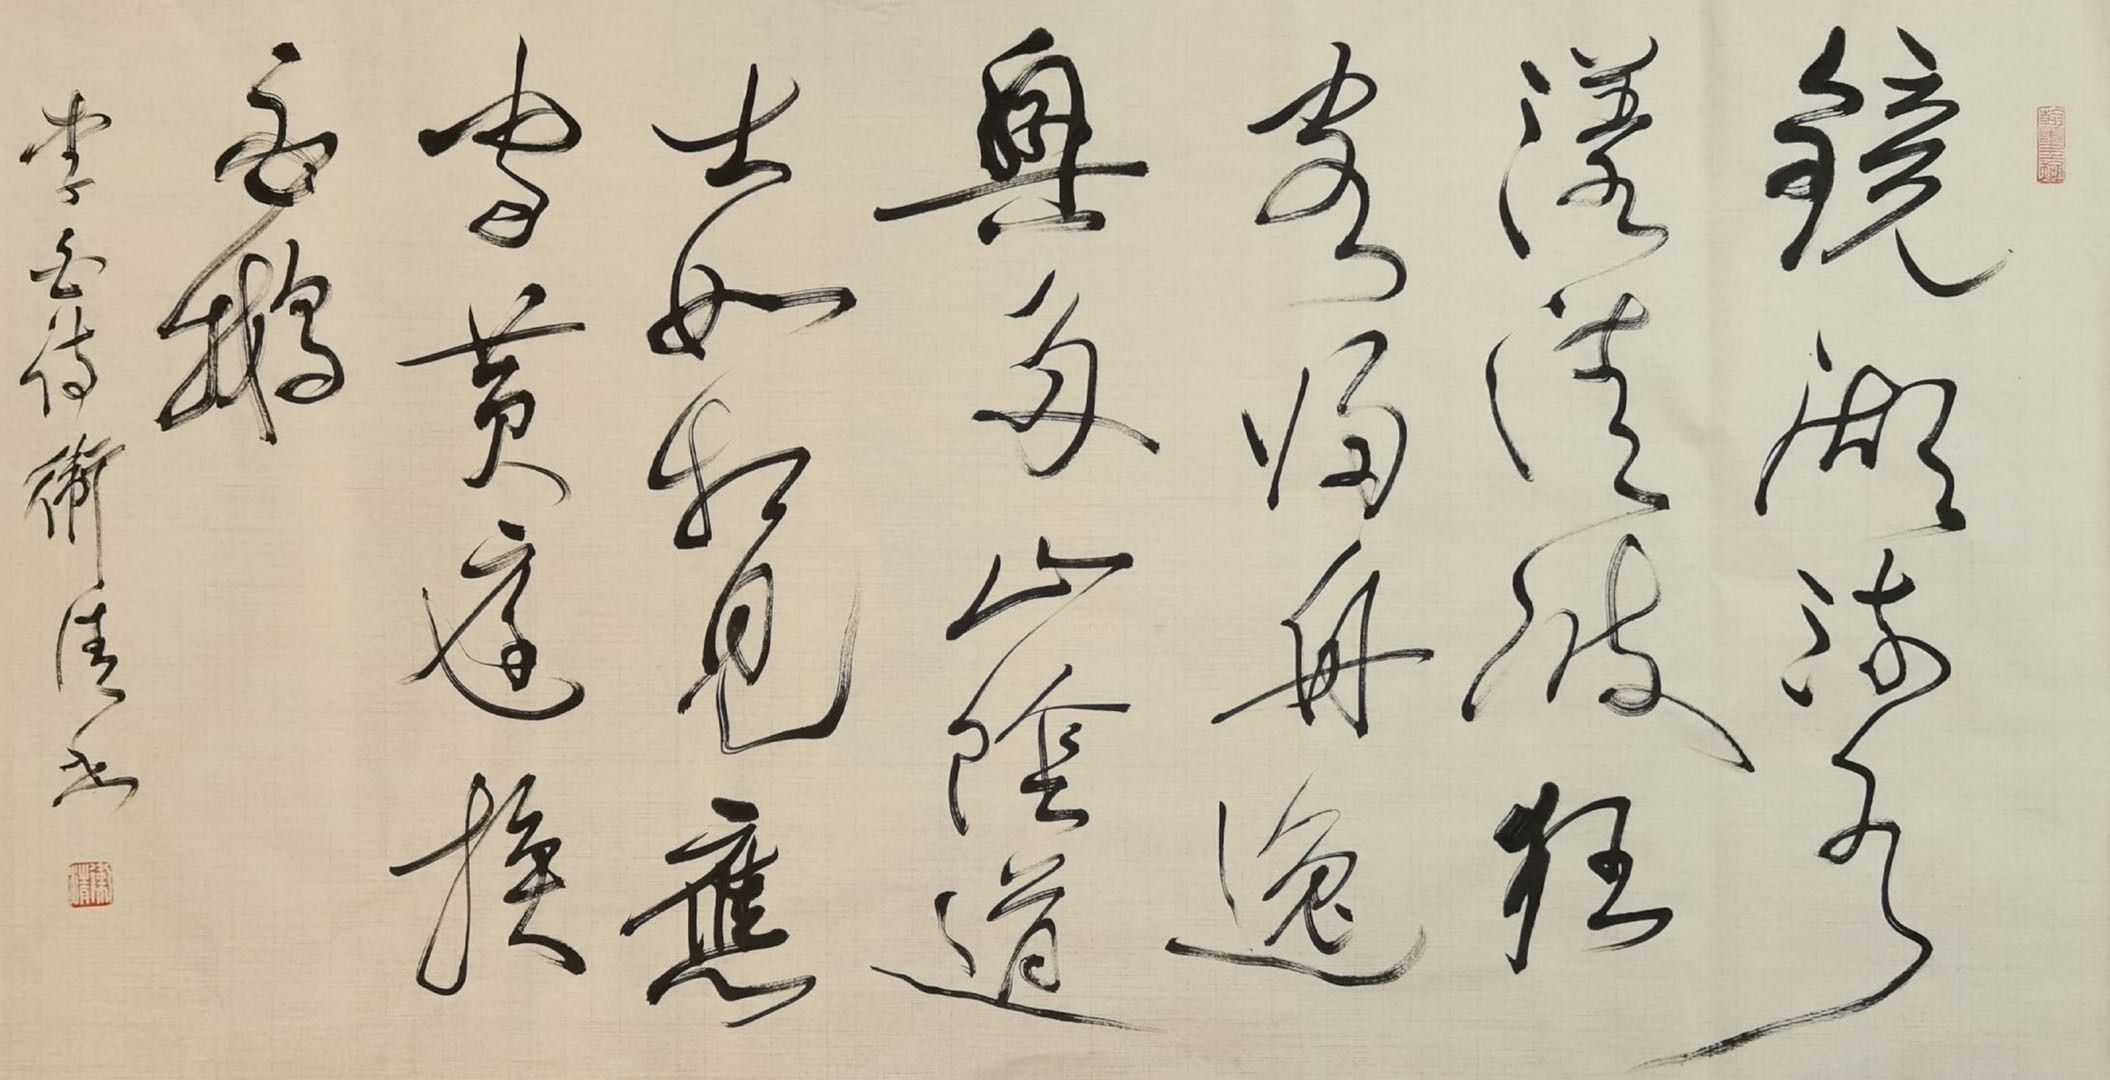 鏡湖流水
漾清波狂
客归舟逸
興多山陰道
士如相見應
写黄庭換
白鵝
李白诗衛清书
衛清